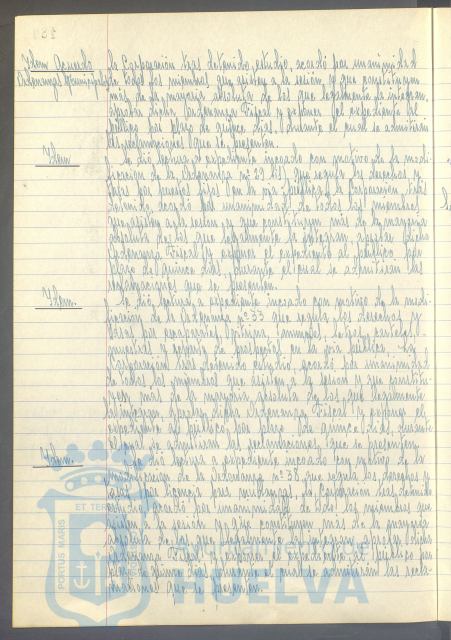 Idem Acuerdo
Ordenanzas Municipales
la Corporación tras detenido estudio, acordó por unanimidad
de todos los miembros que asisten a la sesión y que constituyen
más de la mayoría absoluta de los que legalmente la integran,
aprobar dicha Ordenanza Fiscal y exponer el expediente al
público por plazo de quince días, durante el cual se admitirán
las reclamaciones que se presenten.
Idem
Se dió lectura a expediente incoado con motivo de la modi-
ficación de la Ordenanza nº 29 que regula los derechos y
tasas por puestos fijos en la vía pública, la Corporación, tras
detenido, acordó por unanimidad de todos los miembros
que asisten a la sesión y que constituyen más de la mayoría
absoluta de los que legalmente la integran, aprobar dicha
Ordenanza Fiscal y exponer el expediente al público, por
plazo de quince días, durante el cual se admitirán las
reclamaciones que se presenten.
Idem.
Se dió lectura a expediente incoado con motivo de la modi-
ficación de la Ordenanza nº 33 que regula los derechos y
tasas por escaparates, vitrinas, letras, carteles,
muestras y reparto de prospectos en la vía pública, la
Corporación tras detenido estudio, acordó por unanimidad
de todos los miembros que asisten a la sesión y que constitu-
yen más de la mayoría absoluta de los que legalmente
la integran, aprobar dicha Ordenanza Fiscal y exponer el
expediente al público, por plazo de quince días, durante
el cual se admitirán las reclamaciones que se presenten.
Idem.
Se dió lectura a expediente incoado con motivo de la
modificación de la Ordenanza nº 38 que regula los derechos y
tasas por licencia para mudanzas, la Corporación tras detenido
estudio acordó por unanimidad de todos los miembros que
asisten a la sesión y que constituyen más de la mayoría
absoluta de los que legalmente la integran, aprobar dicha
Ordenanza Fiscal y exponer el expediente al público por
plazo de quince días, durante el cual se admitirán las recla-
maciones que se presenten.
PORTUS MARIS
ET TERRAE
HUELVA